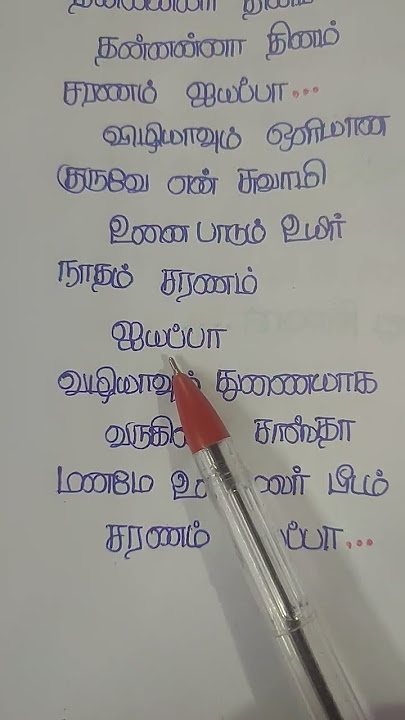 தன்னன்னா தினம்
சரணம் ஐயப்பா...
விழியாவும் ஒளிமான
குருவே என் சுவாமி
உனை பாடும் உயிர்
நாதம் சரணம்
ஐயப்பா
வழியாவும் துணையாக
சாஸ்தா
மனமே பீடம்
சரணம் ...